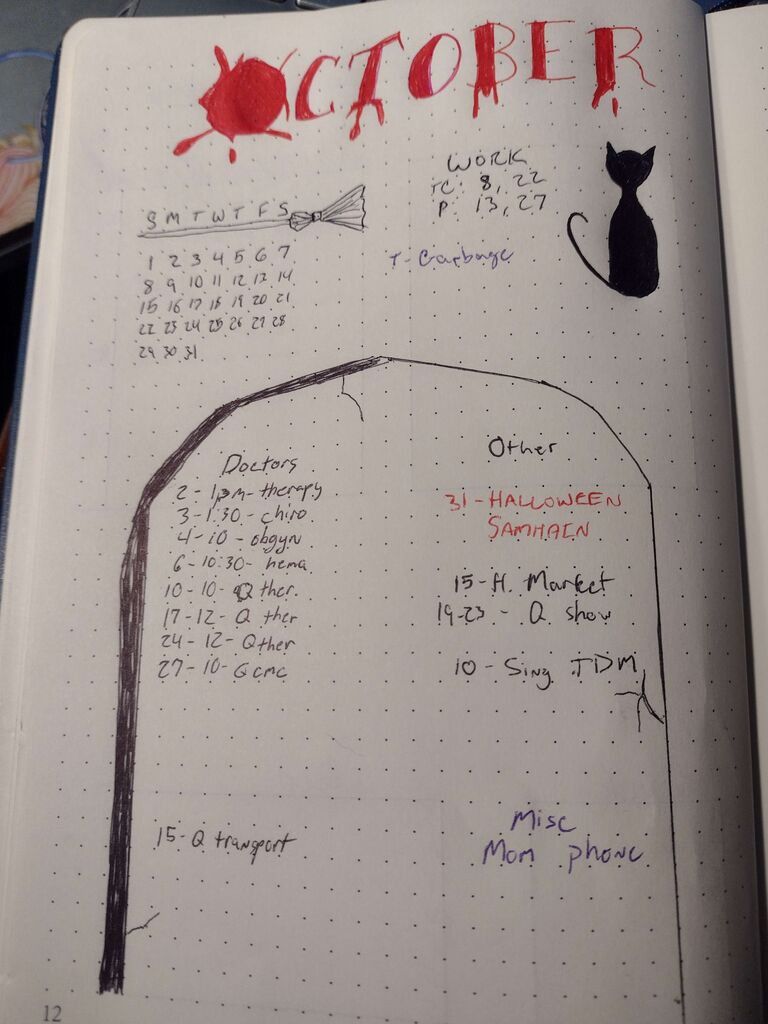 OCTOBER
WORK
TC: 8, 22
P: 13, 27
S M T W T F S
T- Garbage
1 2 3 4 5 6 7
8 9 10 11 12 13 14
15 16 17 18 19 20 21
22 23 24 25 26 27 28
29 30 31
Doctors
2 - 1pm - therapy
3 - 1:30 - chiro
4 - 10 - obgyn
6 - 10:30 - hema
10 - 10 - Q ther.
17 - 12 - Q ther
24 - 12 - Q ther
27 - 10 - Q cmc
15 - Q transport
Other
31 - HALLOWEEN
SAMHAIN
15 - H. Market
19-23 - Q show
10 - Sing TDM
Misc
Mom phone
12